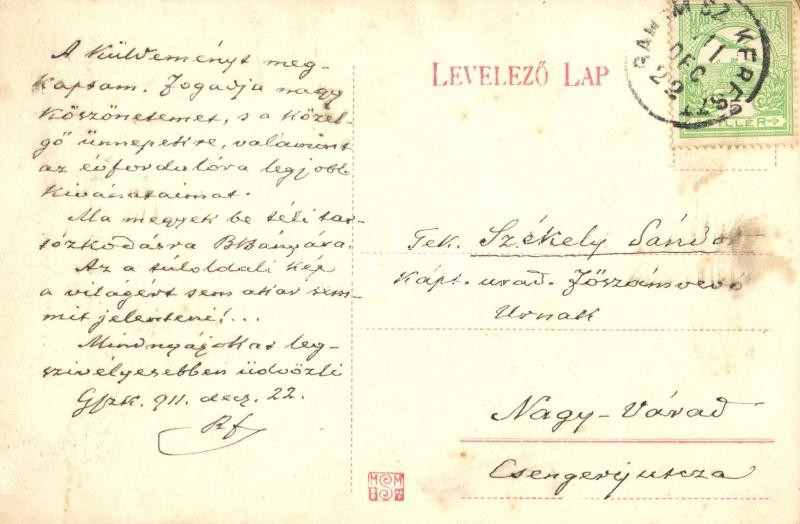 A küldeményt meg-
kaptam. Fogadja nagy
köszönetemet, s a közel-
gő ünnepekre, valamint
az évfordulóra legjobb
kivánataimat.
Ma megyek be téli tar-
tózkodásra BBányára.
Az a túloldali kép
a világért sem akar sem-
mit jelenteni!...
Mindnyájokat leg-
szivélyesebben üdvözli
911. decz. 22.
LEVELEZŐ LAP
Tek. Székely Sándor
Kápt. urad. Főszámvevő
Urnak
Nagy-Várad
Csengerij utcza